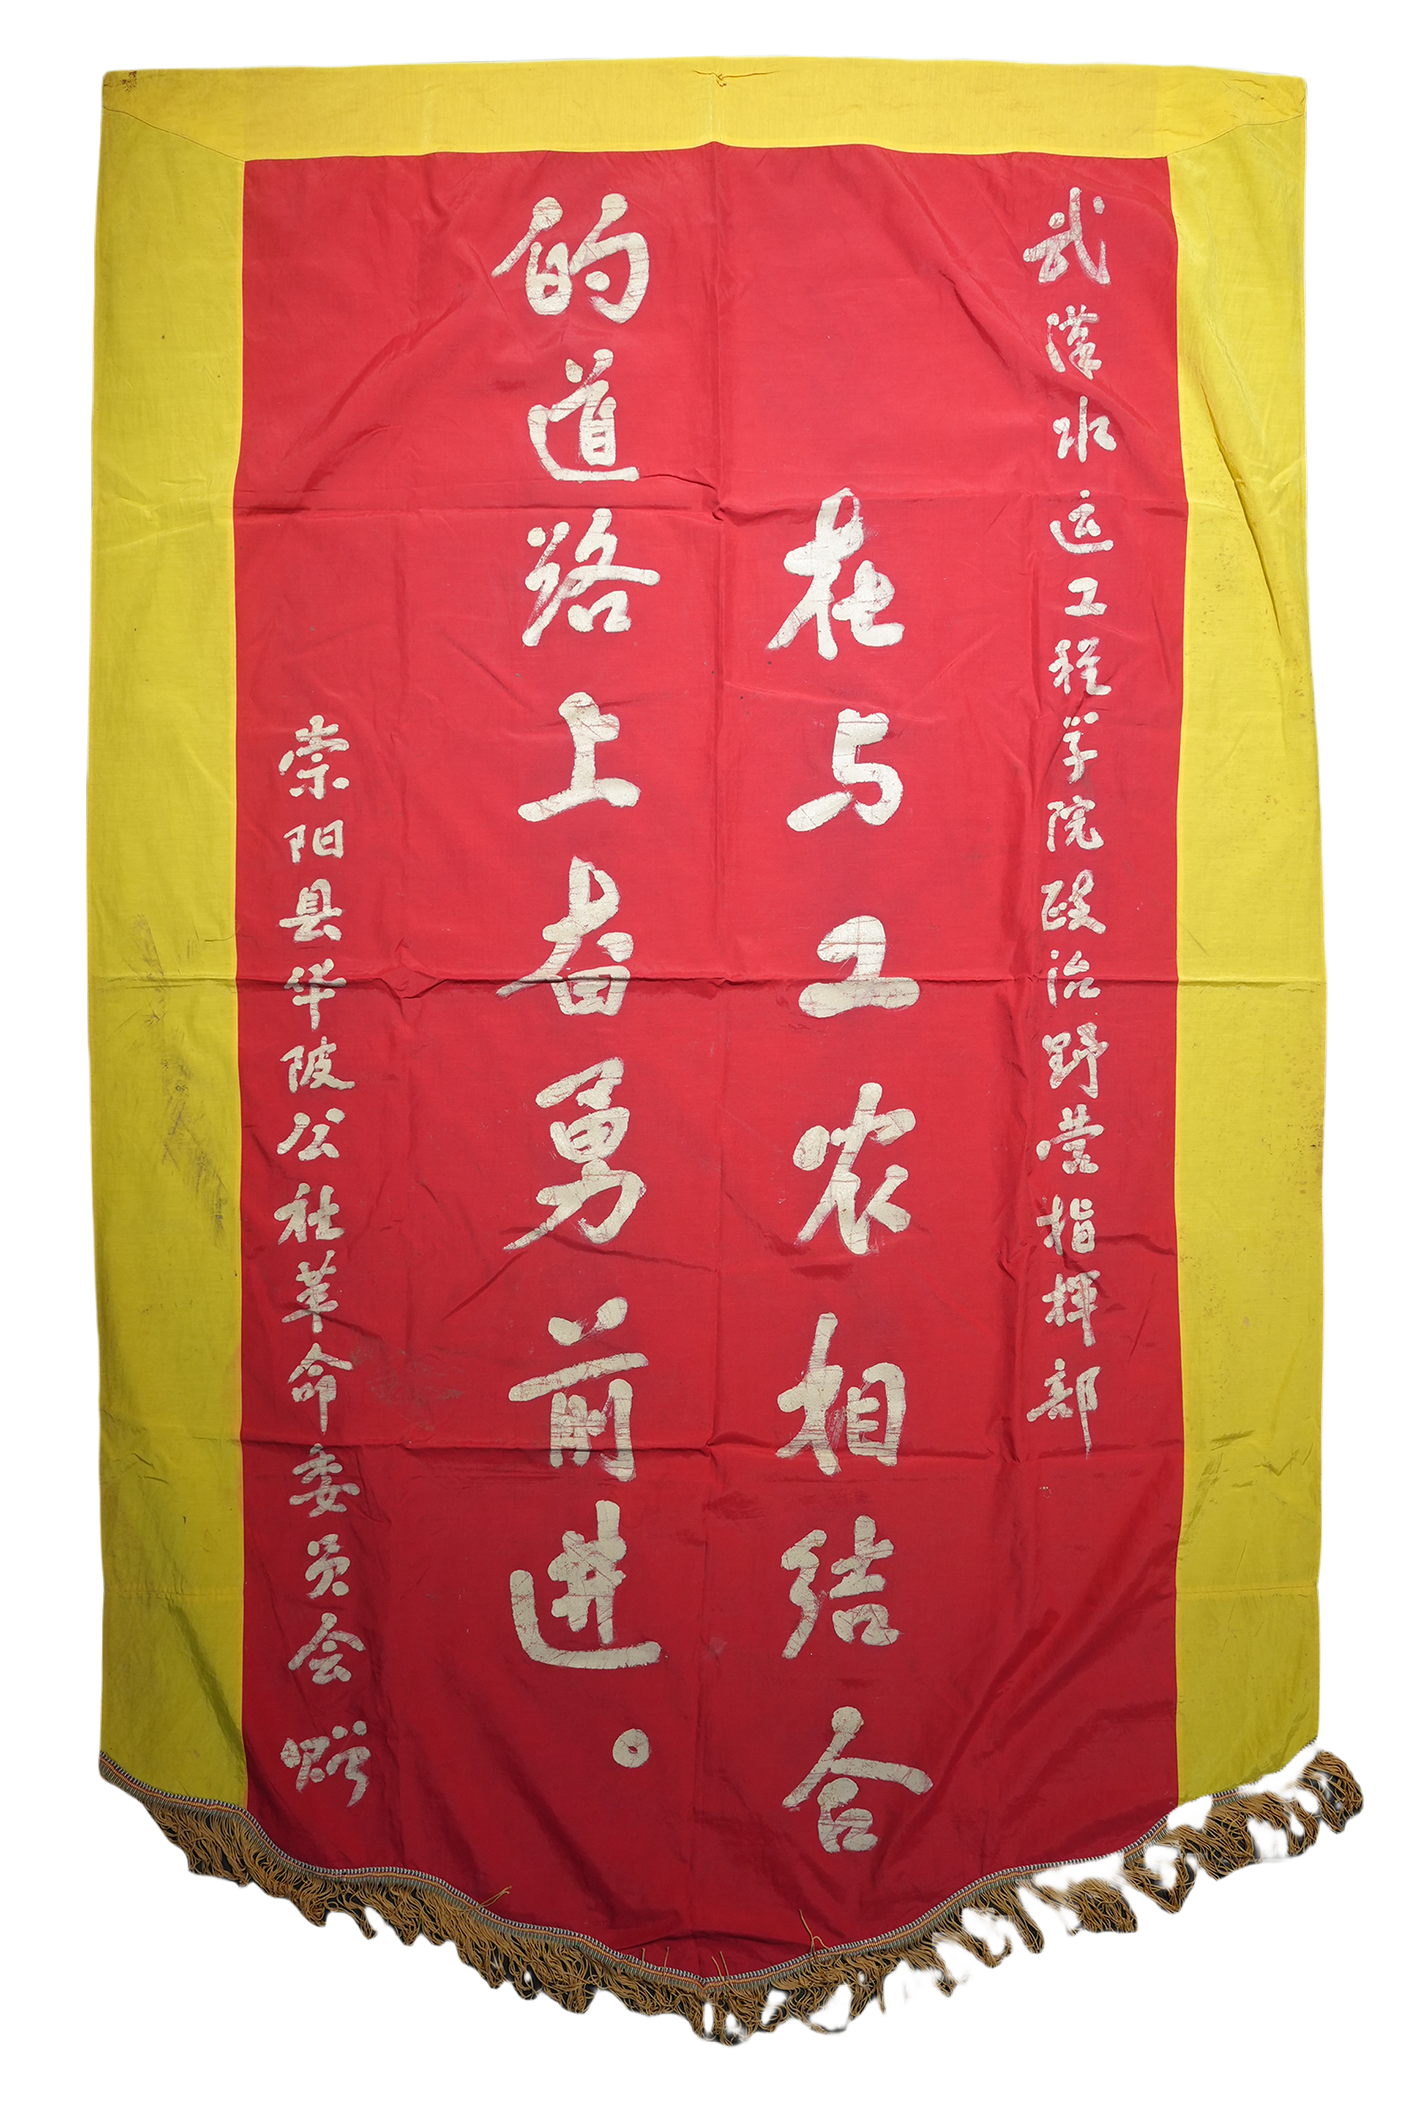 武汉水运工程学院政治野营指挥部
在与工农相结合
的道路上奋勇前进。
崇阳县华陂公社革命委员会赠